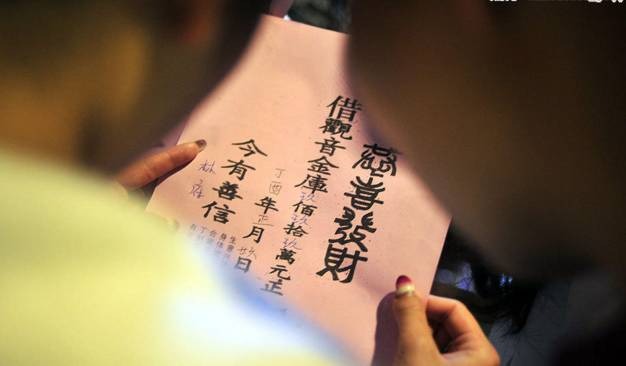 慈喜發財
借觀音金庫玖佰玖拾玖萬元正
丁酉年正月廿六日
今有善信
林